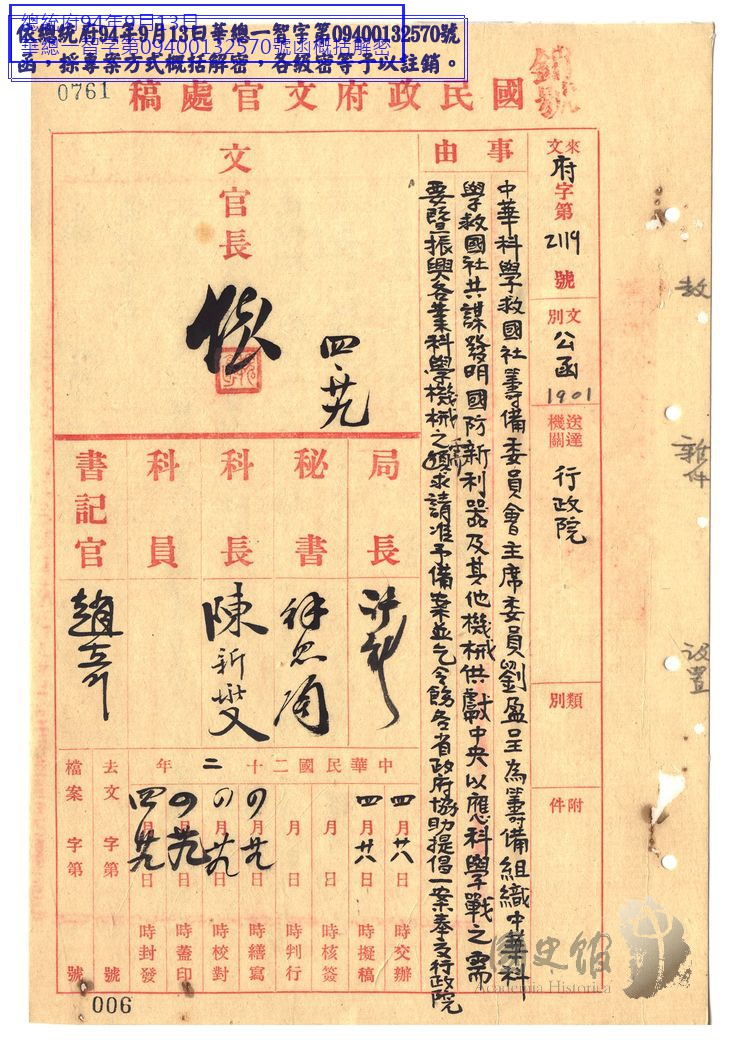 總統府94年9月13日
華總一智字第09400132570號函概括解密
依總統府94年9月13日華總一智字第09400132570號
函，採專案方式概括解密，各級密等予以註銷。
0761
國民政府文官處稿
銷號
來文 府字第2119號
文別 公函
1901
送達機關 行政院
類別
附件
事由
中華科學救國社籌備委員會主席委員劉盈呈為籌備組織中華科
學救國社共謀發明國防新利器及其他機械供獻中央以應科學戰之需
要暨振興各業科學機械之需求請准予備案並乞令飭各省政府協助提倡一案奉交行政院
文官長
四、廿九
局長
秘書
科長 陳新燮
科員
書記官
中華民國二十二年
四月廿八日 時交辦
四月廿八日 時擬稿
月 日 時核簽
月 日 時判行
四月廿九日 時繕寫
四月廿九日 時校對
四月廿九日 時蓋印
四月廿九日 時封發
去文 字第 號
檔案 字第 號
教
雜件
設置
國史館
Academia Historica
006